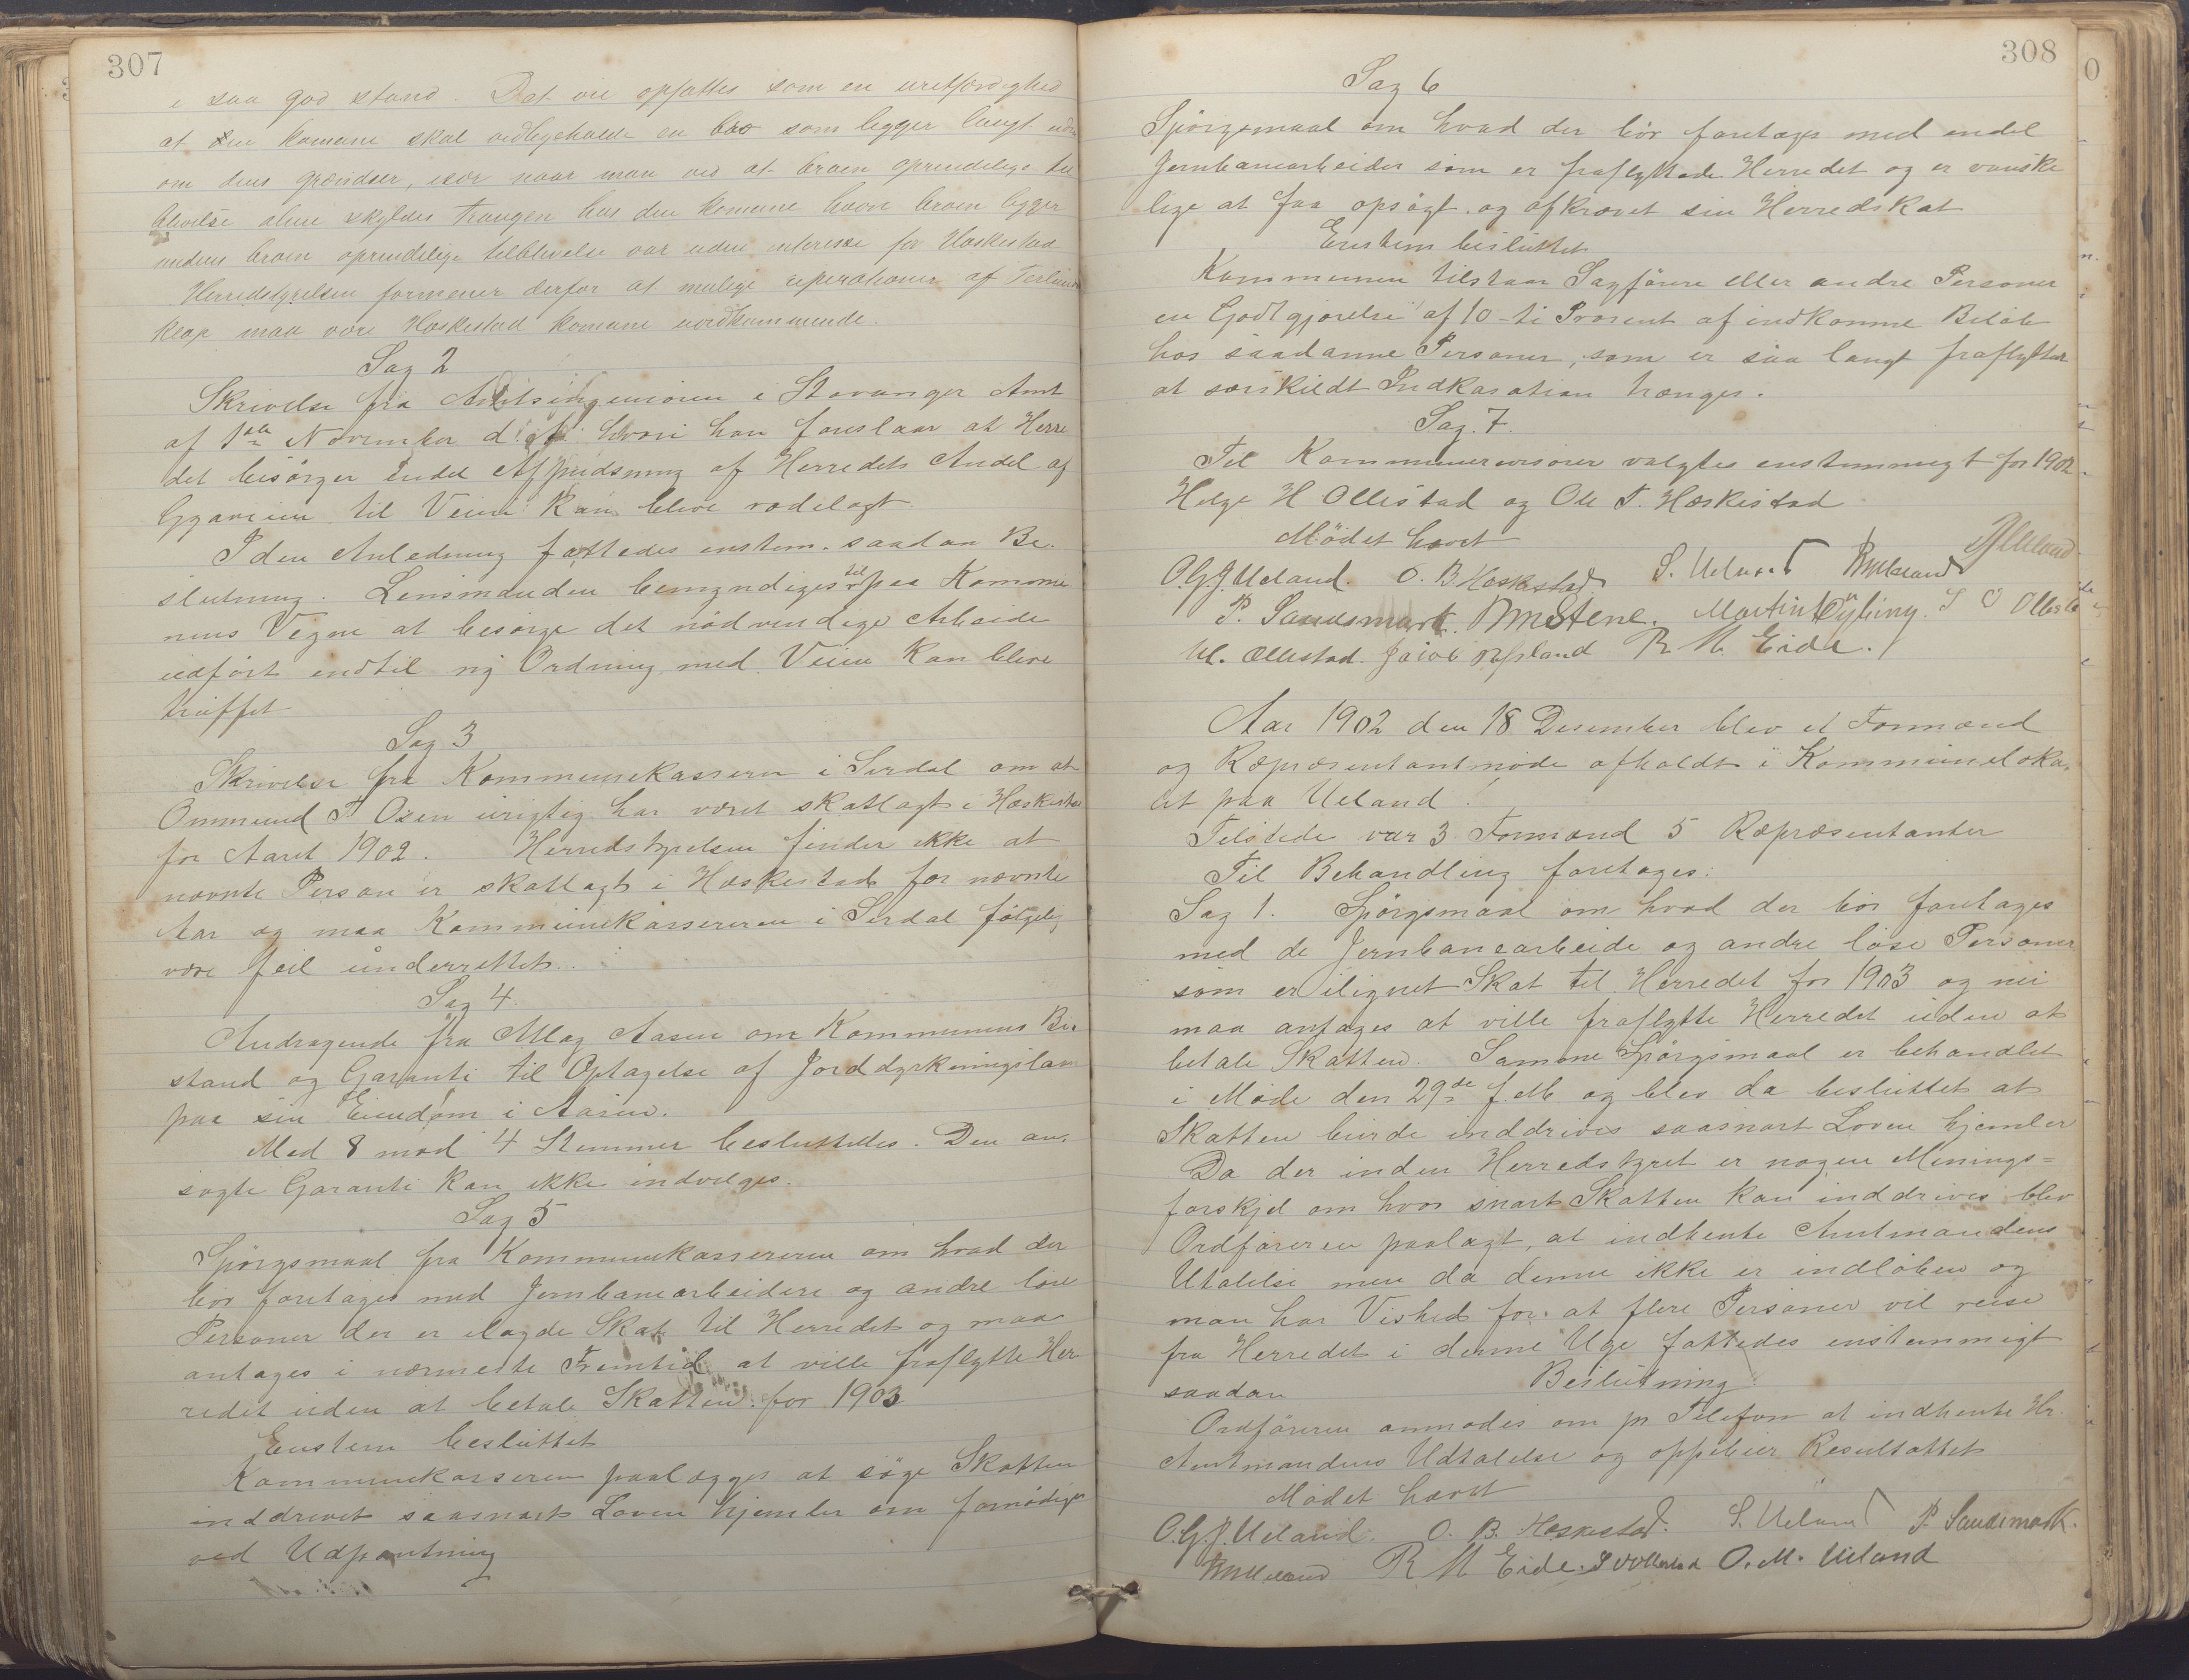 307
i saa god stand. Det vil opfattes som en uretfærdighed
at den komune skal vedligeholde en bro som ligger langt uden
om dens grændser, især naar man ved at broen oprindelige til
blivelse alene skyldes trangen hos den komune hvori broen ligger
medens broen oprindelige tilblivelse var uden interesse for Heskestad
Herredstyrelsen formener derfor at mulige reperationer af
klop maa være Heskestad komune uvedkommende.
Sag 2
Skrivelse fra Amtsingeniøren i Stavanger Amt
af 1ste November d. A. hvori han foreslaar at Herre
det besørger endel Afpudsning af Herredets Andel af
Gyaveien til Veien kan blive rodelagt.
I den Anledning fattedes enstem. saadan Be.
slutning. Lensmanden bemyndiges til paa Kommu
nens Vegne at besørge det nødvendige Arbeide
udført indtil ny Ordning med Veien kan blive
truffet
Sag 3
Skrivelse fra Kommunekasseren i Sirdal om at
Ommund T Osen urigtig har været skatlagt i Heskestad
for Aaret 1902. Herredstyrelsen finder ikke at
nævnte Person er skatlagt i Heskestad for nævnte
Aar og maa Kommunekassereren i Sirdal følgelig
være feil underrettet.
Sag 4.
Andragende fra Atlag Aasen om Kommunens Bi
stand og Garanti til Optagelse af Jorddyrkningslaan
paa sin Eiendom i Aasen.
Med 8 mod 4 Stemmer besluttedes. Den an.
søgte Garanti kan ikke indvilges.
Sag 5
Spørgsmaal fra Kommunekassereren om hvad der
bør foretages med Jernbanearbeidere og andre løse
Personer der er ilagde Skat til Herredet og maa
antages i nærmeste Fremtid at ville fraflytte Her
redet uden at betale Skatten for 1903
Enstem besluttet
Kommunekasseren paalægges at søge Skatten
inddrivet saasnart Loven hjemler om fornødiges
ved Udpantning
308
Sag 6
Spørgsmaal om hvad der bør foretages med endel
Jernbanearbeider som er fraflyttede Herredet og er vanske
lige at faa opsøgt og afkrævet sin Herredskat
Enstem besluttet
Kommunen tilstaar Sagførere eller andre Personer
en Godtgjørelse af 10 ti Prosent af indkomne Beløb
hos saadanne Personer, som er saa langt fraflyttet
at særskildt Indkasation trænges.
Sag. 7.
Til Kommunerevisorer valgtes enstemmigt for 1902
Helge H Ollestad og Ole T. Heskestad
Mødet hævet
O.G.J. Ueland. O. B. Heskestad S. Ueland
P. Sandsmark. Stene. Martin S O Ollestad
Ol. Ollestad. Jacob Refsland R M. Eide.
Aar 1902 den 18 Desember blev et Formænd
og Repræsentantmøde afholdt i Kommuneloka.
let paa Ueland.
Tilstede var 3 Formænd 5 Repræsentanter
Til Behandling foretoges:
Sag 1. Spørgsmaal om hvad der bør foretages
med de Jernbanearbeide og andre løse Personer
som er ilignet Skat til Herredet for 1903 og nu
maa antages at ville fraflytte Herredet uden at
betale Skatten. Samme Spørgsmaal er behandlet
i Møde den 29de f. M. og blev da besluttet at
Skatten burde inddrives saasnart Loven hjemler
Da der inden Herredstyret er nogen Menings=
forskjel om hvor snart Skatten kan inddrives blev
Ordføreren paalagt, at indhente Amtmandens
Utalelse men da denne ikke er indløben og
man har Vished for at flere Personer vil reise
fra Herredet i denne Uge fattedes enstemmigt
saadan Beslutning
Ordføreren anmodes om pr Telefon at indhente Hr.
Amtmandens Udtalelse og oppebier Resultattet
Mødet hævet
O.G.J. Ueland. O. B. Heskestad. S. Ueland P. Sandsmark.
R M Eide. S O Ollestad O. M. Ueland